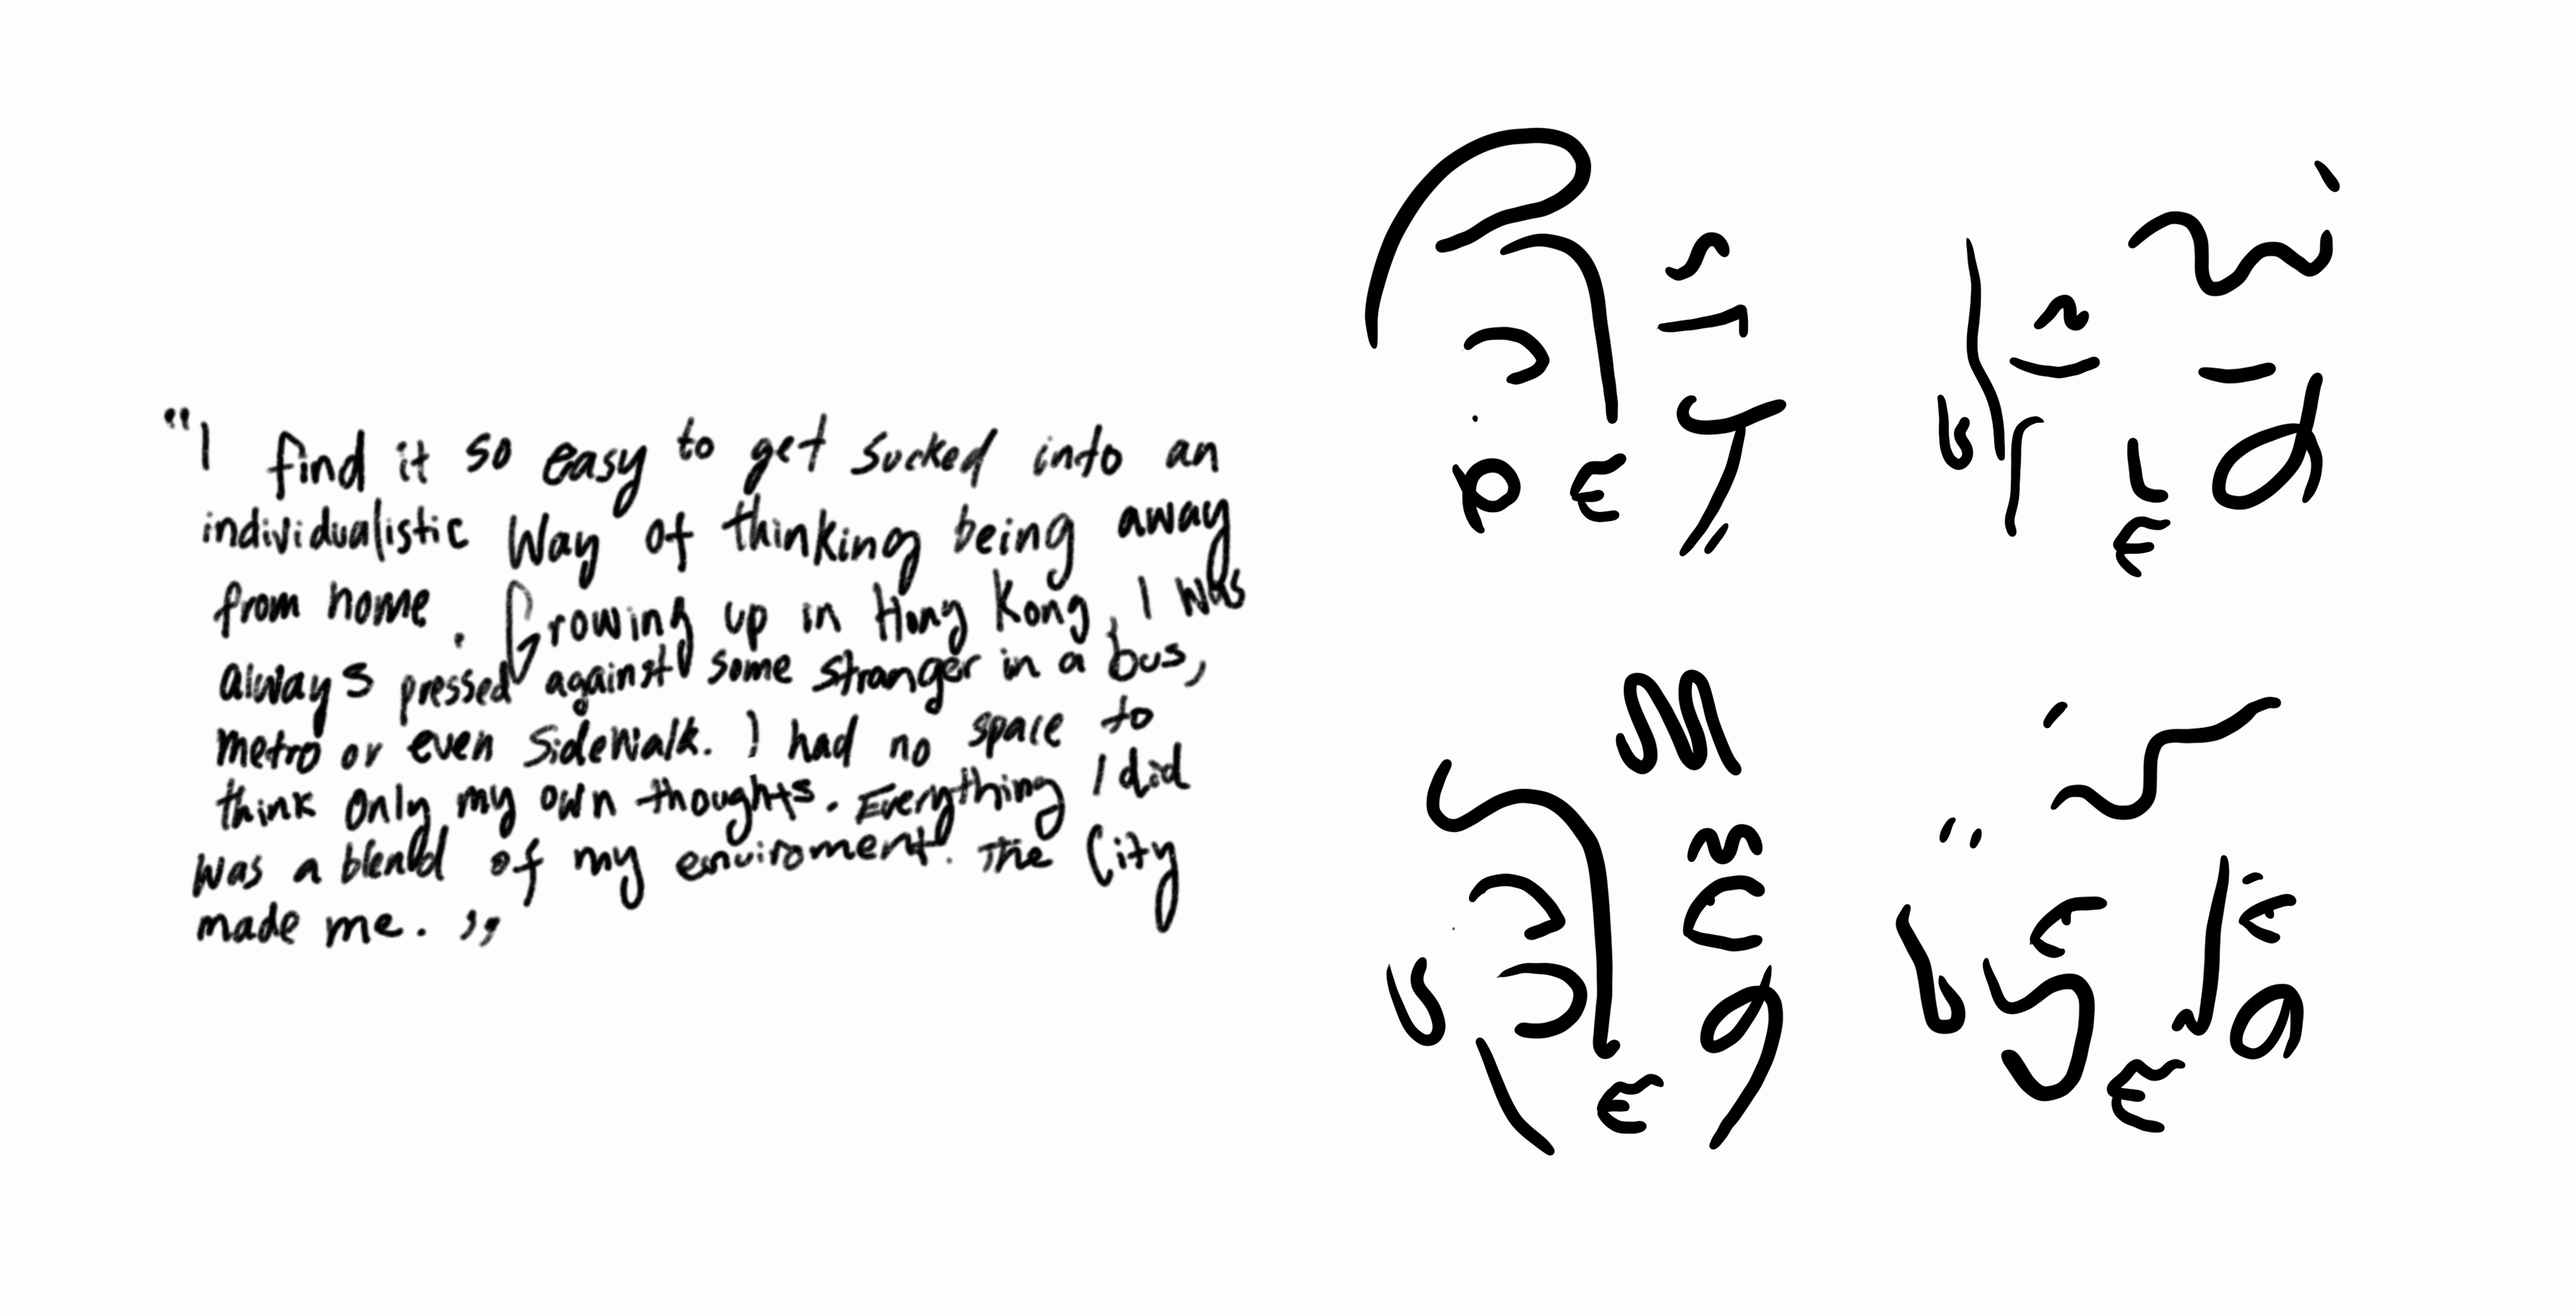 "I find it so easy to get sucked into an
individualistic way of thinking being away
from home. Growing up in Hong Kong, I was
always pressed against some stranger in a bus,
metro or even sidewalk. I had no space to
think only my own thoughts. Everything I did
was a blend of my enviroment. The City
made me. ,,